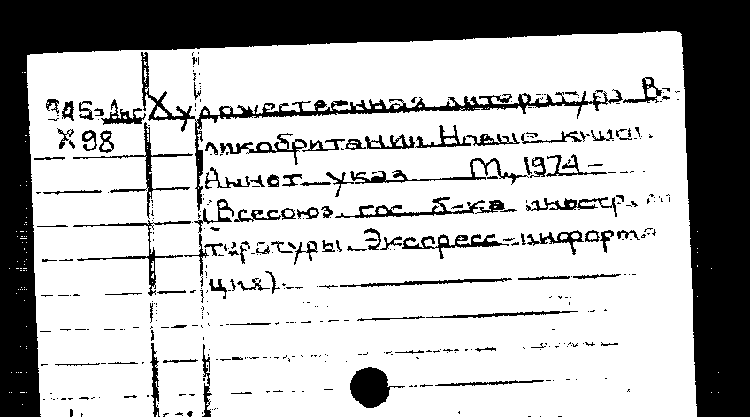 Художественная литература Ве-
Х98 ликобритании. Новые книги.
Аннот. указ М., 1974 –
(Всесоюз. гос. б-ка иностр. ли
тературы. Экспресс-информа
ция).